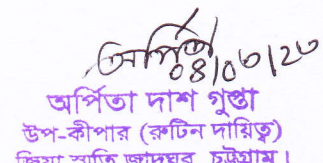 অর্পিতা
০৪/০৬/২৩
অর্পিতা দাশ গুপ্তা
উপ-কীপার (রুটিন দায়িত্ব)
জিয়া স্মৃতি জাদুঘর, চট্টগ্রাম।